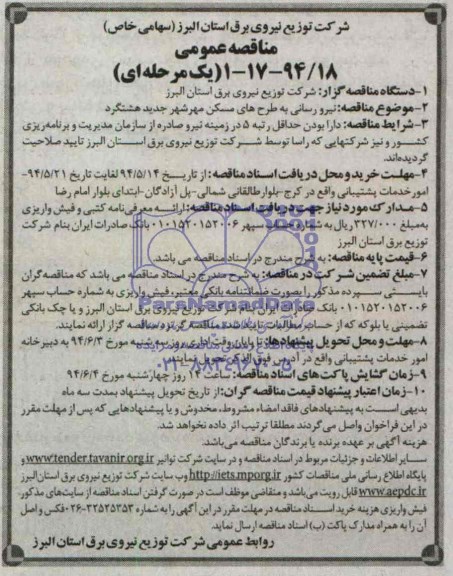 شرکت توزیع نیروی برق استان البرز (سهامی خاص)
مناقصه عمومی
۱-۱۷-۹۴/۱۸ (یک مرحله ای)
۱-دستگاه مناقصه گزار: شرکت توزیع نیروی برق استان البرز
۲-موضوع مناقصه: نیرو رسانی به طرح های مسکن مهر شهر جدید هشتگرد
۳-شرایط مناقصه: دارا بودن حداقل رتبه ۵ در زمینه نیرو صادره از سازمان مدیریت و برنامه ریزی
کشور و نیز شرکتهایی که راسا توسط شرکت توزیع نیروی برق استان البرز تایید صلاحیت
گردیده اند.
۴-مهلت خرید و محل دریافت اسناد مناقصه: از تاریخ ۹۴/۵/۱۴ لغایت تاریخ ۹۴/۵/۲۱-
امور خدمات پشتیبانی واقع در کرج-بلوار طالقانی شمالی-پل آزادگان-ابتدای بلوار امام رضا
۵-مدارک مورد نیاز جهت دریافت اسناد مناقصه: ارائه معرفی نامه کتبی و فیش واریزی
به مبلغ ۳۲۷/۰۰۰ ریال به شماره حساب سپهر ۰۱۰۱۵۲۰۱۵۲۰۰۶ بانک صادرات ایران بنام شرکت
توزیع برق استان البرز
۶-قیمت پایه مناقصه: به شرح مندرج در اسناد مناقصه می باشد.
۷-مبلغ تضمین شرکت در مناقصه: به شرح مندرج در اسناد مناقصه می باشد که مناقصه گران
بایستی سپرده مذکور را بصورت ضمانتنامه بانکی معتبر، فیش واریزی به شماره حساب سپهر
۰۱۰۱۵۲۰۱۵۲۰۰۶ بانک صادرات ایران بنام شرکت توزیع نیروی برق استان البرز و یا چک بانکی
تضمینی یا بلوکه که از حساب مطالبات تایید شده مناقصه گر نزد مناقصه گزار ارائه نمایند.
۸-مهلت و محل تحویل پیشنهادها: تا پایان وقت اداری روز سه شنبه مورخ ۹۴/۶/۳ به دبیرخانه
امور خدمات پشتیبانی واقع در آدرس فوق الذکر تحویل نمایند.
۹-زمان گشایش پاکت های اسناد مناقصه: ساعت ۱۴ روز چهارشنبه مورخ ۹۴/۶/۴
۱۰-زمان اعتبار پیشنهاد قیمت مناقصه گران: از تاریخ تحویل پیشنهاد بمدت سه ماه
بدیهی است به پیشنهادهای فاقد امضاء مشروط، مخدوش و یا پیشنهادهایی که پس از مهلت مقرر
در این فراخوان واصل می گردند مطلقا ترتیب اثر داده نخواهد شد.
هزینه آگهی بر عهده برنده یا برندگان مناقصه می باشد.
سایر اطلاعات و جزئیات مربوط در اسناد مناقصه و در سایت شرکت توانیر www.tender.tavanir.org.ir و
پایگاه اطلاع رسانی ملی مناقصات کشور http://iets.mporg.ir و وب سایت شرکت توزیع نیروی برق استان البرز
www.aepdc.ir قابل رویت می باشد و متقاضی موظف است در صورت گرفتن اسناد مناقصه از سایت های مذکور،
فیش واریزی هزینه خرید اسناد مناقصه در مهلت مقرر در این آگهی را به شماره ۳۲۵۲۵۳۵۳-۰۲۶ فکس و اصل
آن را به همراه مدارک پاکت (ب) اسناد مناقصه ارسال نماید.
روابط عمومی شرکت توزیع نیروی برق استان البرز
ParsNamadData
۰۲۱-۸۸۳۴۹۶۷۰-۵